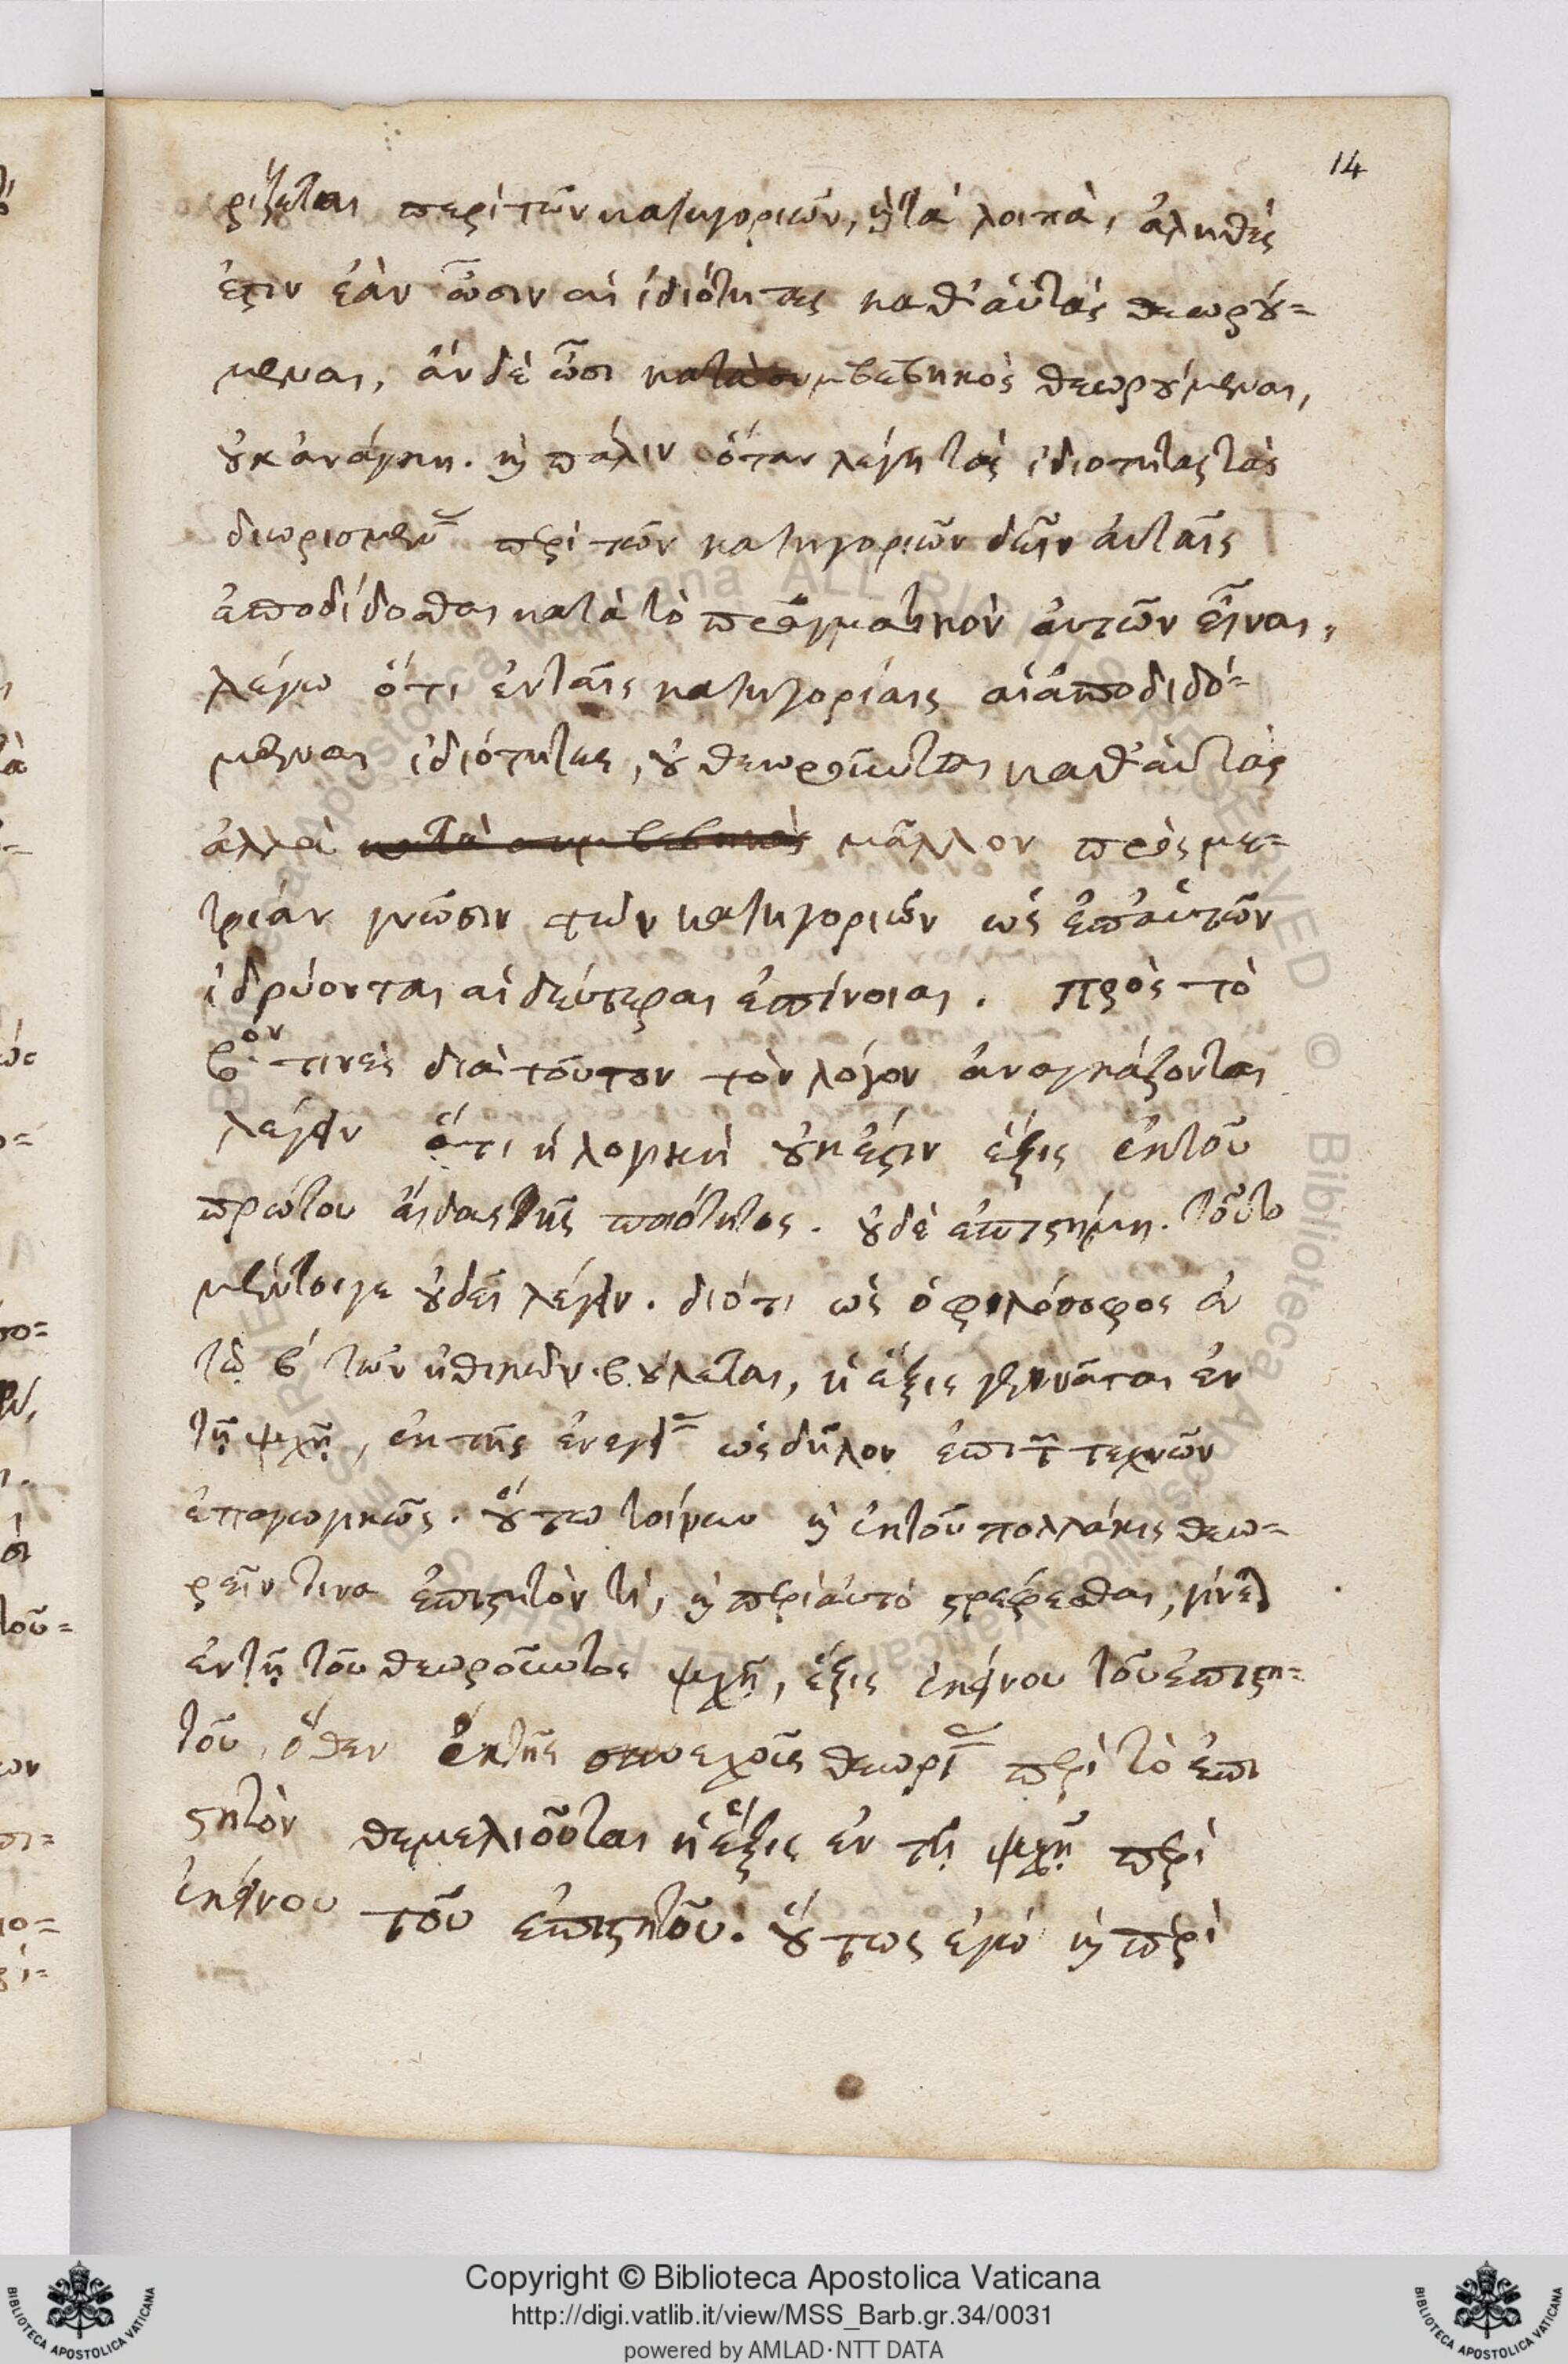 14
ρίζεται περὶ τῶν κατηγοριῶν, καὶ τὰ λοιπὰ, ἀληθές
ἐστιν ἐὰν ὦσιν αἱ ἰδιότητες καθ' αὑτὰς θεωρού=
μεναι, ἂν δὲ ὦσι κατὰ συμβεβηκὸς θεωρούμεναι,
οὐκ ἀνάγκη. καὶ πάλιν ὅταν λέγῃ τὰς ἰδιότητας τὰς
διωρισμένας περὶ τῶν κατηγοριῶν δεῖν αὐταῖς
ἀποδίδοσθαι κατὰ τὸ πραγματικὸν αὐτῶν εἶναι,
λέγω ὅτι ἐν ταῖς κατηγορίαις αἱ ἀποδιδό=
μεναι ἰδιότητες, οὐ θεωροῦνται καθ' αὑτὰς
ἀλλὰ κατὰ συμβεβηκὸς μᾶλλον πρὸς με=
τρίαν γνῶσιν τῶν κατηγοριῶν ὡς ἐπ' αὐτῶν
ἱδρύονται αἱ δεύτεραι ἐπίνοιαι. πρὸς τὸ
β.ον τινὲς διὰ τοῦτον τὸν λόγον ἀναγκάζονται
λέγειν ὅτι ἡ λογικὴ οὐκ ἔστιν ἕξις ἐκ τοῦ
πρώτου εἴδους τῆς ποιότητος. οὐδὲ ἐπιστήμη. τοῦτο
μέντοιγε οὐ δεῖ λέγειν. διότι ὡς ὁ φιλόσοφος ἐν
τῷ β' τῶν ἠθικῶν βούλεται, ἡ ἕξις γεννᾶται ἐν
τῇ ψυχῇ, ἐκ τῆς ἐνεργείας ὡς δῆλον ἐπὶ τῶν τεχνῶν
ἐπαγωγικῶς. οὕτω τοίνυν καὶ ἐκ τοῦ πολλάκις θεω=
ρεῖν τινα ἐπιστητὸν τὶ, καὶ περὶ αὐτὸ στρέφεσθαι, γίνεται
ἐν τῇ τοῦ θεωροῦντος ψυχῇ, ἕξις ἐκείνου τοῦ ἐπιστη=
τοῦ, ὅθεν ἐκ τῆς συνεχοῦς θεωρίας περὶ τὸ ἐπι
στητὸν θεμελιοῦται ἡ ἕξις ἐν τῇ ψυχῇ περὶ
ἐκείνου τοῦ ἐπιστητοῦ. οὕτως ἐγὼ καὶ περὶ
Copyright © Biblioteca Apostolica Vaticana
http://digi.vatlib.it/view/MSS_Barb.gr.34/0031
powered by AMLAD·NTT DATA